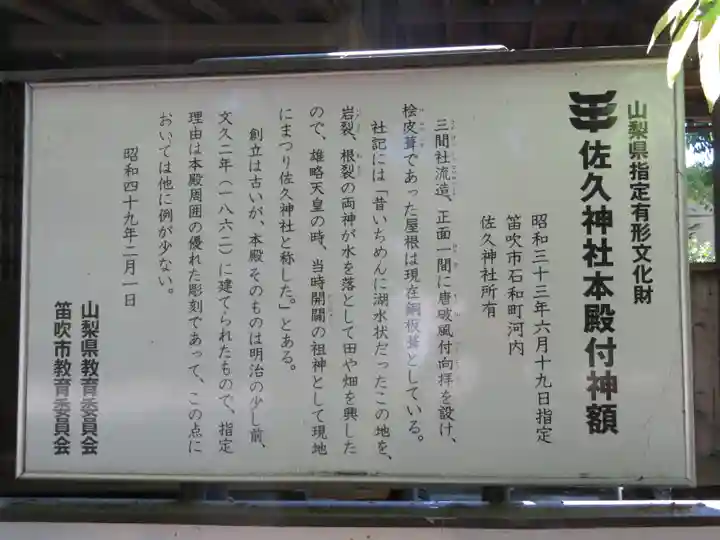 山梨県指定有形文化財
佐久神社本殿付神額
昭和三十三年六月十九日指定
笛吹市石和町河内
佐久神社所有
三間社流造、正面一間に唐破風付向拝を設け、
桧皮葺であった屋根は現在銅板葺としている。
社記には「昔いちめんに湖水状だったこの地を、
岩裂、根裂の両神が水を落として田や畑を興した
ので、雄略天皇の時、当時開闢の祖神として現地
にまつり佐久神社と称した。」とある。
創立は古いが、本殿そのものは明治の少し前、
文久二年（一八六二）に建てられたもので、指定
理由は本殿周囲の優れた彫刻であって、この点に
おいては他に例が少ない。
昭和四十九年二月一日
山梨県教育委員会
笛吹市教育委員会